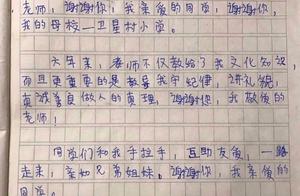 老师，谢谢你，我亲爱的同学，谢谢你，
我的母校—卫星村小学。
六年来，老师不仅教给了我文化知识，
而且更重要的是教导我守纪律，讲礼貌，
真诚善良做人的真理，谢谢你，我敬爱的
老师！
同学们和我手拉手，互助友爱，一路
走来，亲如兄弟姐妹。谢谢你，我亲爱的
同学。